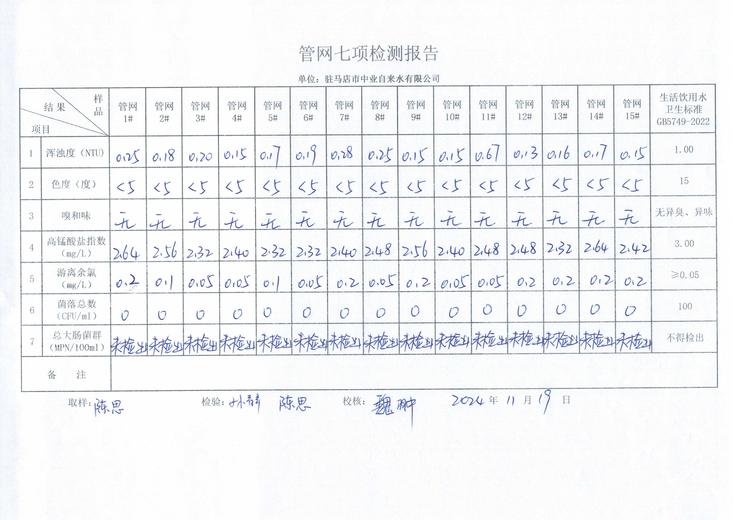 管网七项检测报告
单位：驻马店市中业自来水有限公司
结果 样品 项目 管网1# 管网2# 管网3# 管网4# 管网5# 管网6# 管网7# 管网8# 管网9# 管网10# 管网11# 管网12# 管网13# 管网14# 管网15# 生活饮用水卫生标准GB5749-2022
1 浑浊度（NTU） 0.25 0.18 0.20 0.15 0.17 0.19 0.28 0.25 0.15 0.15 0.67 0.13 0.16 0.17 0.15 1.00
2 色度（度） <5 <5 <5 <5 <5 <5 <5 <5 <5 <5 <5 <5 <5 <5 <5 15
3 嗅和味 无 无 无 无 无 无 无 无 无 无 无 无 无 无 无 无异臭、异味
4 高锰酸盐指数（mg/L） 2.64 2.56 2.32 2.40 2.32 2.32 2.40 2.48 2.56 2.40 2.48 2.48 2.32 2.64 2.42 3.00
5 游离余氯（mg/L） 0.2 0.1 0.05 0.05 0.1 0.05 0.2 0.05 0.2 0.05 0.05 0.2 0.2 0.2 0.2 ≥0.05
6 菌落总数（CFU/ml） 0 0 0 0 0 0 0 0 0 0 0 0 0 0 0 100
7 总大肠菌群（MPN/100ml） 未检出 未检出 未检出 未检出 未检出 未检出 未检出 未检出 未检出 未检出 未检出 未检出 未检出 未检出 未检出 不得检出
备 注
取样：陈思 检验： 陈思 校核：魏翀 2024年11月19日